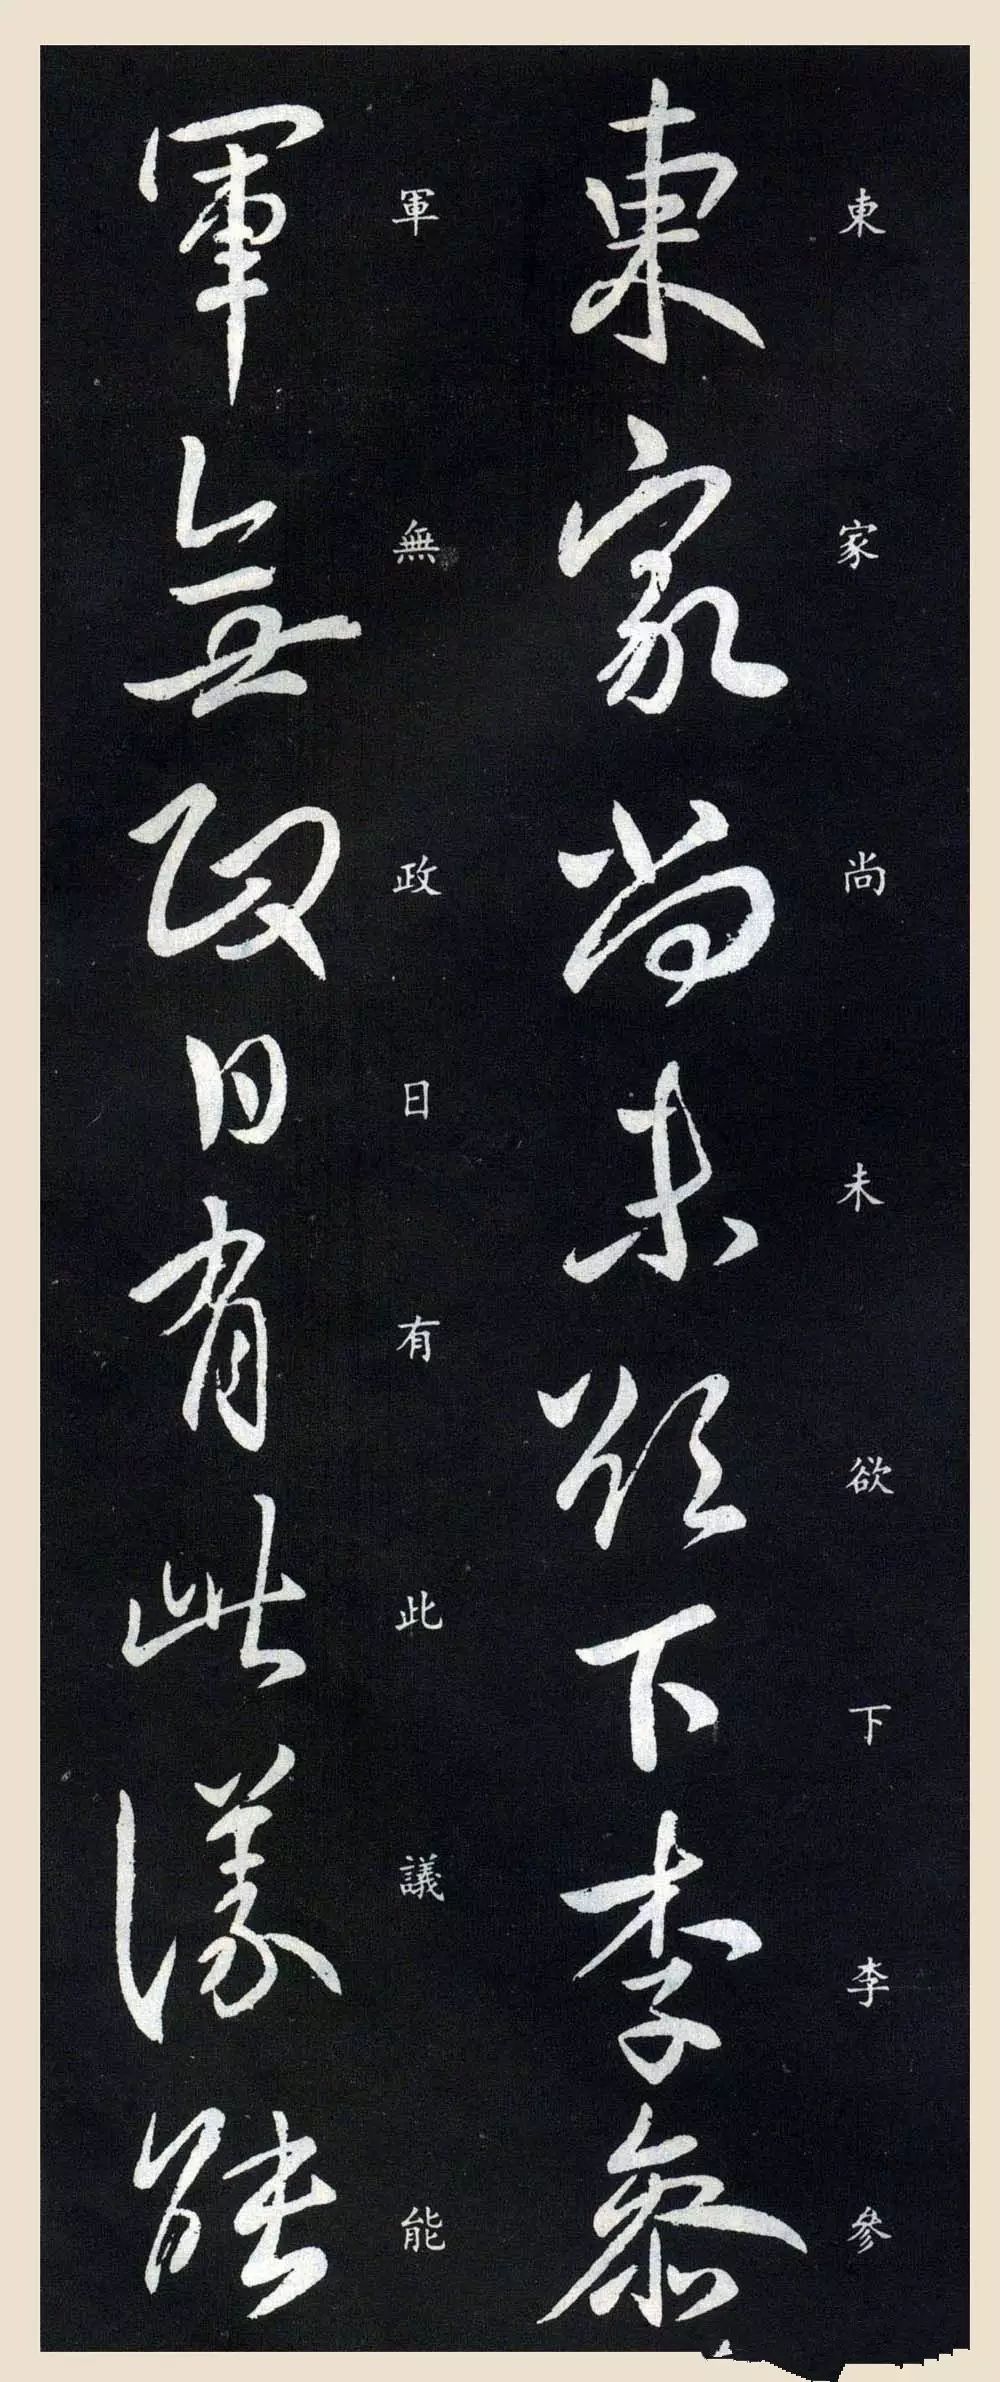 東家尚未欲下李參
東家尚未欲下李參
軍無政日有此議能
軍無政日有此議能